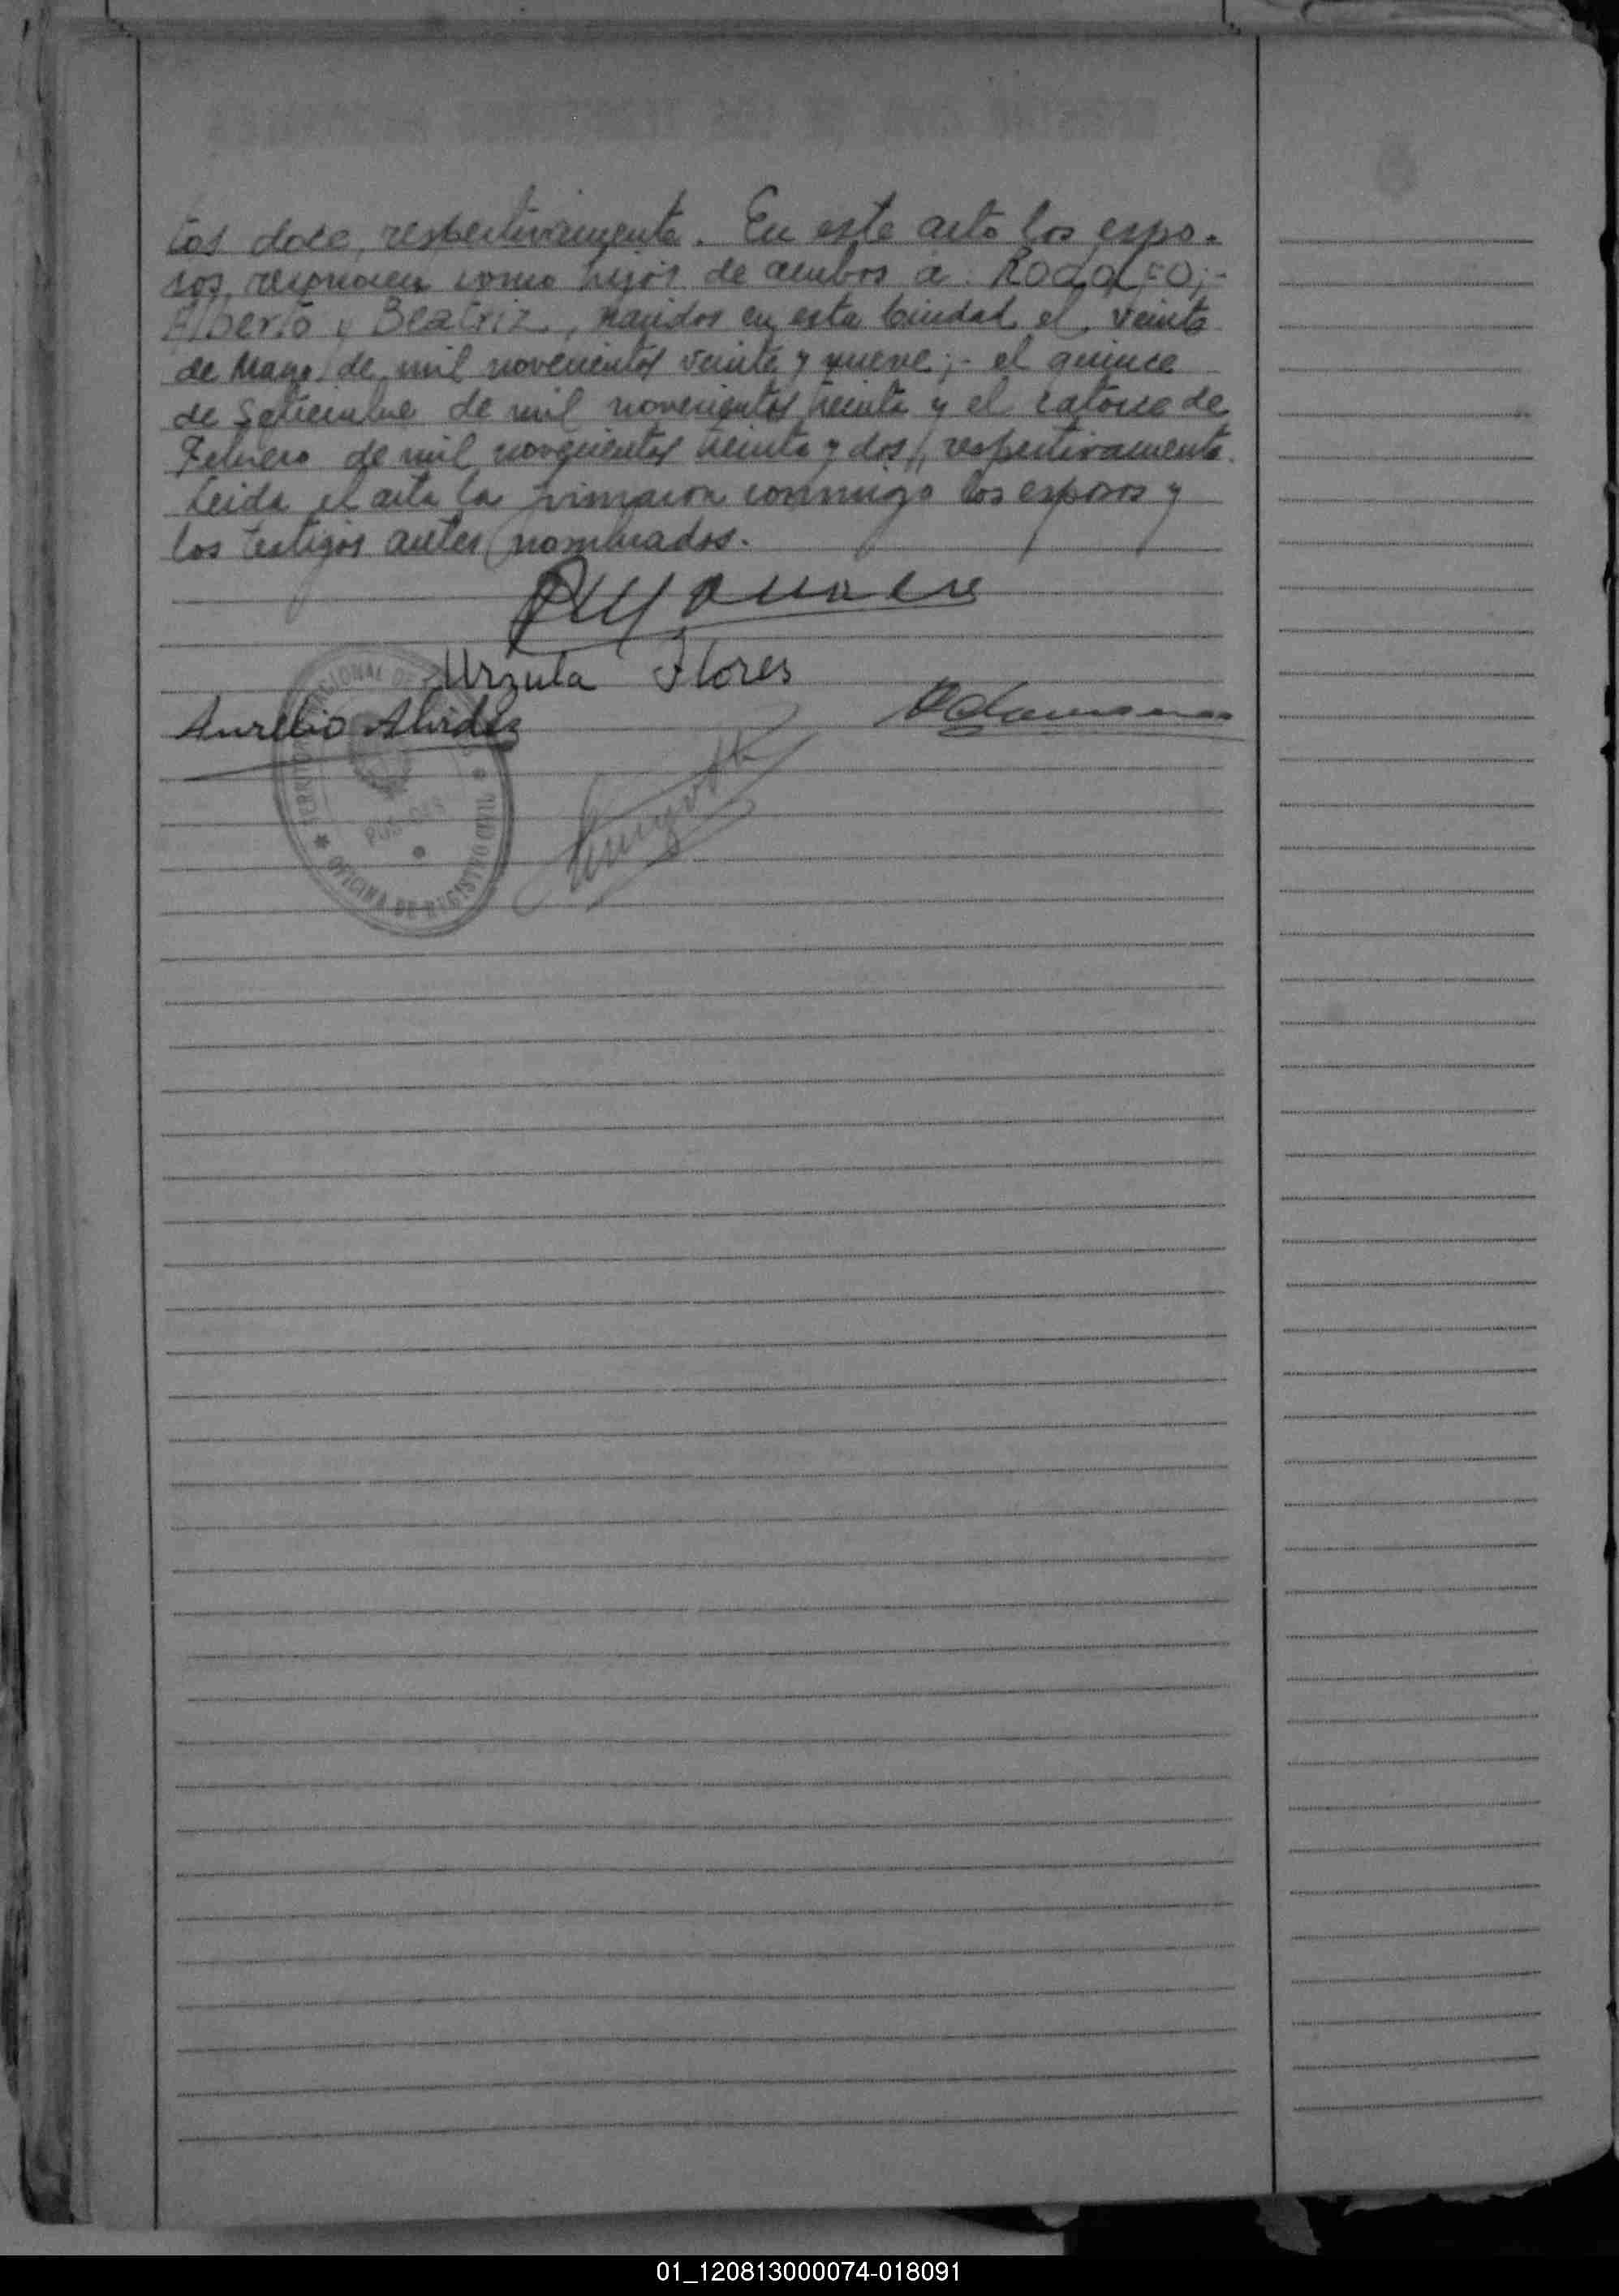 tos doce, respectivamente. En este acto los espo-
sos, reconocen como hijos de ambos a: Rodolfo;-
Alberto y Beatriz, nacidos en esta Ciudad el, veinte
de Mayo de mil novecientos veinte y nueve;- el quince
de Setiembre de mil novecientos treinta y el catorce de
Febrero de mil novecientos treinta y dos, respectivamente.
Leida el acta la firmaron conmigo los esposos y
los testigos antes nombrados.
Urzula Flores
Aurelio Alvidez
TERRITORIO NACIONAL DE
OFICINA DE REGISTRO CIVIL
01_120813000074-018091